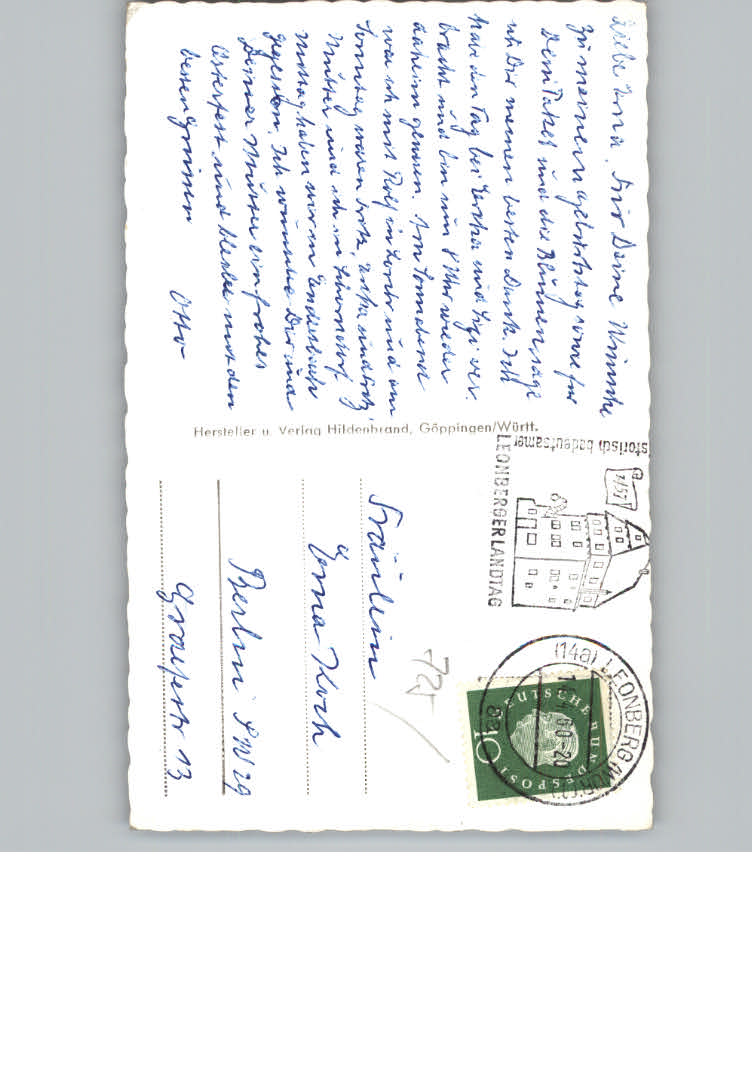 Liebe Erna. Für Deine Wünsche
zu meinem Geburtstag sowie für
Dein Paket und die Blumen sage
ich Dir meinen besten Dank. Ich
habe den Tag bei Esther und ver-
bracht und bin um 8 Uhr wieder
daheim gewesen. Am Sonnabend
war ich mit Rolf in Lorch und am
Sonntag waren Fritz,
Mutter und ich in Schorndorf. Zu
Mittag haben wir in Endersbach
gegessen. Ich wünsche Dir und
Deiner Mutter ein frohes
Osterfest und bleibe mit den
besten Grüssen
Otto
Hersteller u. Verlag Hildenbrand, Göppingen/Württ.
historisch bedeutsamer
1457
LEONBERGER LANDTAG
(14a) LEONBERG (WÜRTT)
60-20
DEUTSCHE BUNDESPOST
10
725
Fräulein
Erna Koch
Berlin SW 29
Graefestr 13